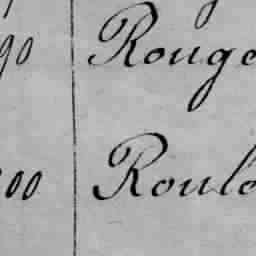 90 Rouge
00 Roulo